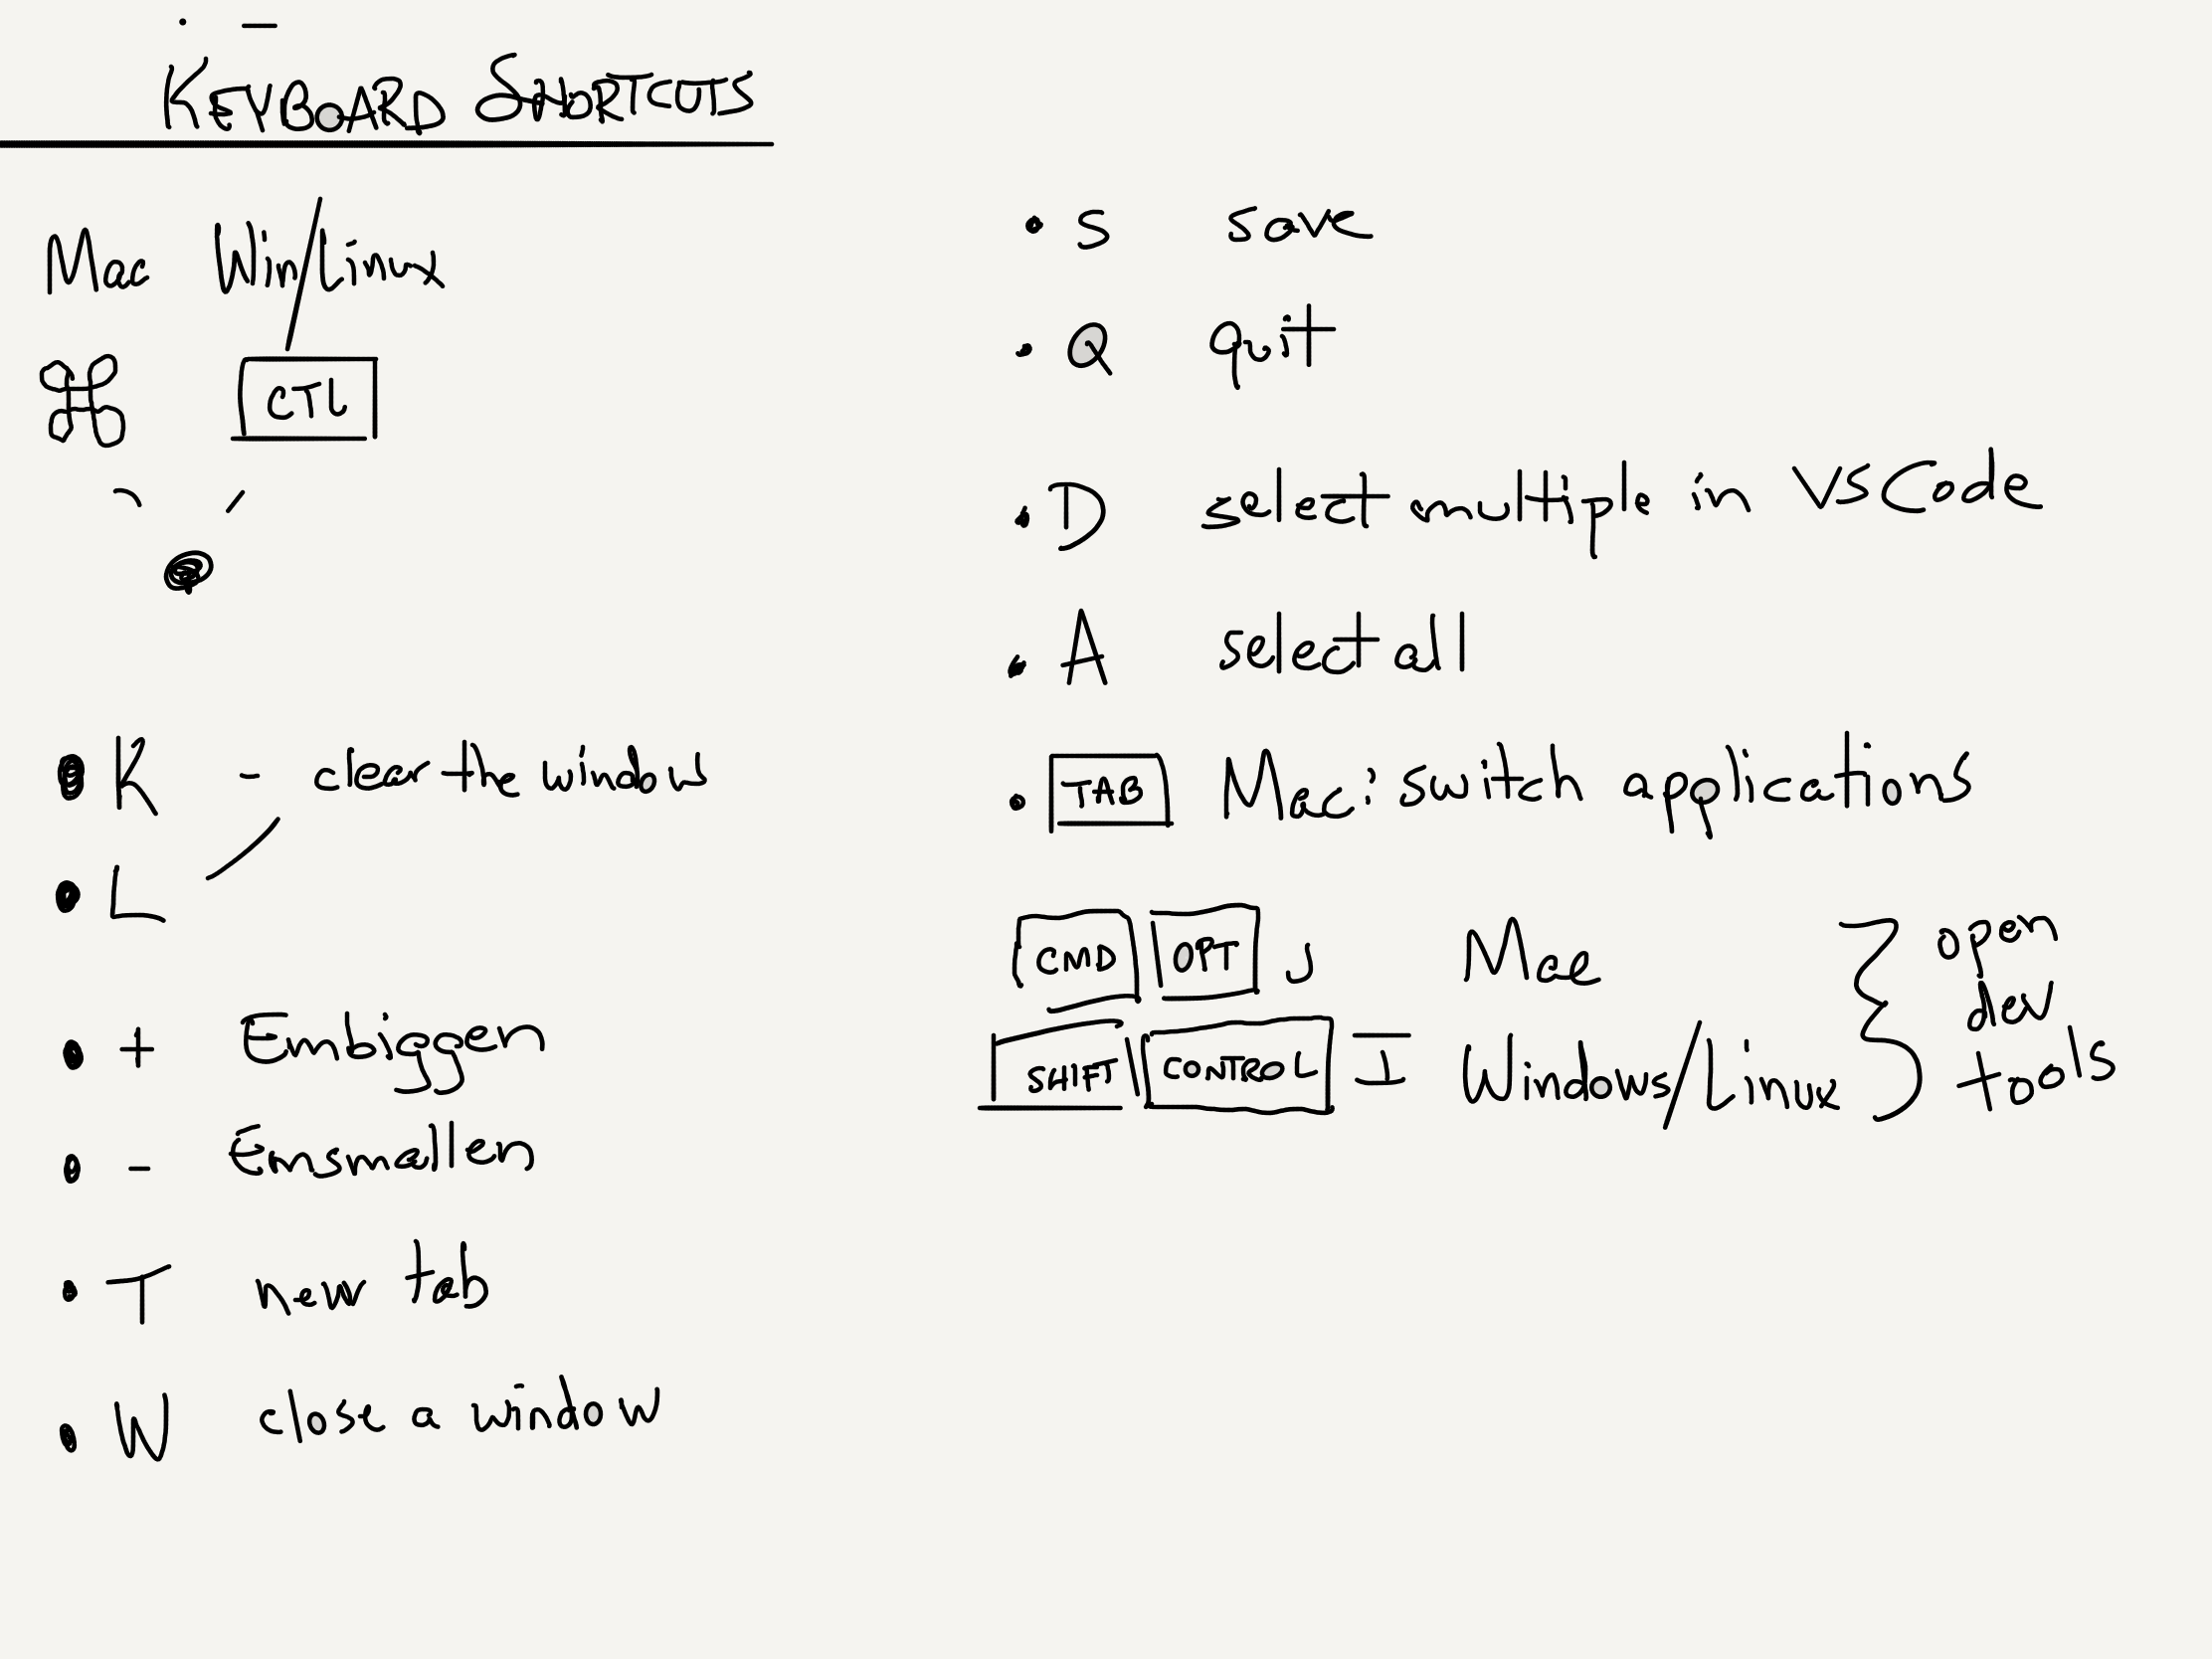 KEYBOARD SHORTCUTS
Mac Win/Linux
⌘ CTL
• K - clear the window
• L
• + Embiggen
• - Ensmallen
• T new tab
• W close a window
• S save
• Q quit
• D select multiple in VSCode
• A select all
• TAB Mac: switch applications
CMD OPT J Mac
SHIFT CONTROL I Windows/Linux
open
dev
tools